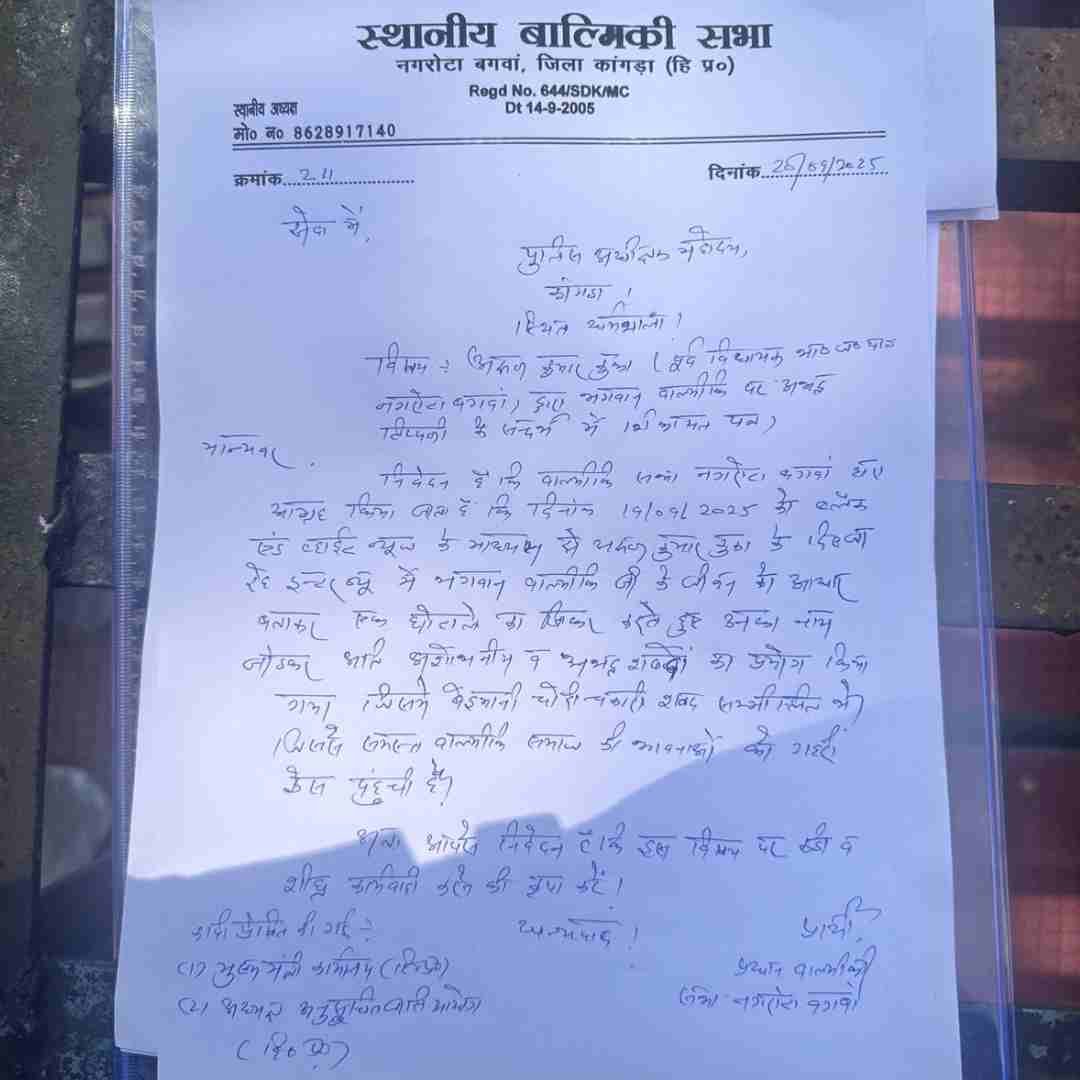 स्थानीय बाल्मिकी सभा
नगरोटा बगवां, जिला कांगड़ा (हि प्र०)
Regd No. 644/SDK/MC
Dt 14-9-2005
स्थानीय अध्यक्ष
मो० न० 8628917140
क्रमांक 211
दिनांक /09/2025
सेवा में,
पुलिस अधीक्षक महोदय,
कांगडा !
स्थित धर्मशाला !
विषय : अरूण कुमार कुका (पूर्व विधायक भा० ज० पा०
नगरोटा बगवां) द्वारा भगवान वाल्मीकि पर अभद्र
टिप्पणी के सन्दर्भ में शिकायत पत्र)
मान्यवर,
निवेदन है कि वाल्मीकि सभा नगरोटा बगवां द्वारा
आग्रह किया जाता है कि दिनांक 19/09/2025 को ब्लैक
एंड व्हाईट न्यूज के माध्यम से अरूण कुमार कुका के दिए जा
रहे इन्टरव्यू में भगवान वाल्मीकि जी के जीवन को आधार
बनाकर एक घोटाले का जिकर करते हुए उनका नाम
जोडकर अति अशोभनीय व अभद्र शब्दों का प्रयोग किया
गया जिसमे बेइमानी चोरी चकारी शब्द सम्मीलित थे।
जिससे समस्त वाल्मीकि समाज की भावनाओं को गहरी
ठेस पंहुची है।
अतः आपसे निवेदन है कि इस विषय पर कडी व
शीघ्र कार्यवाही करने की कृपा करें !
कापी प्रेषित की गई :-
धन्यवाद !
प्रार्थी
(1) मुख्य मंत्री कार्यालय (हि० प्र०)
प्रधान वाल्मीकी
(2) अध्यक्ष अनुसूचित जाति आयोग
सभा नगरोटा बगवां
(हि० प्र०)